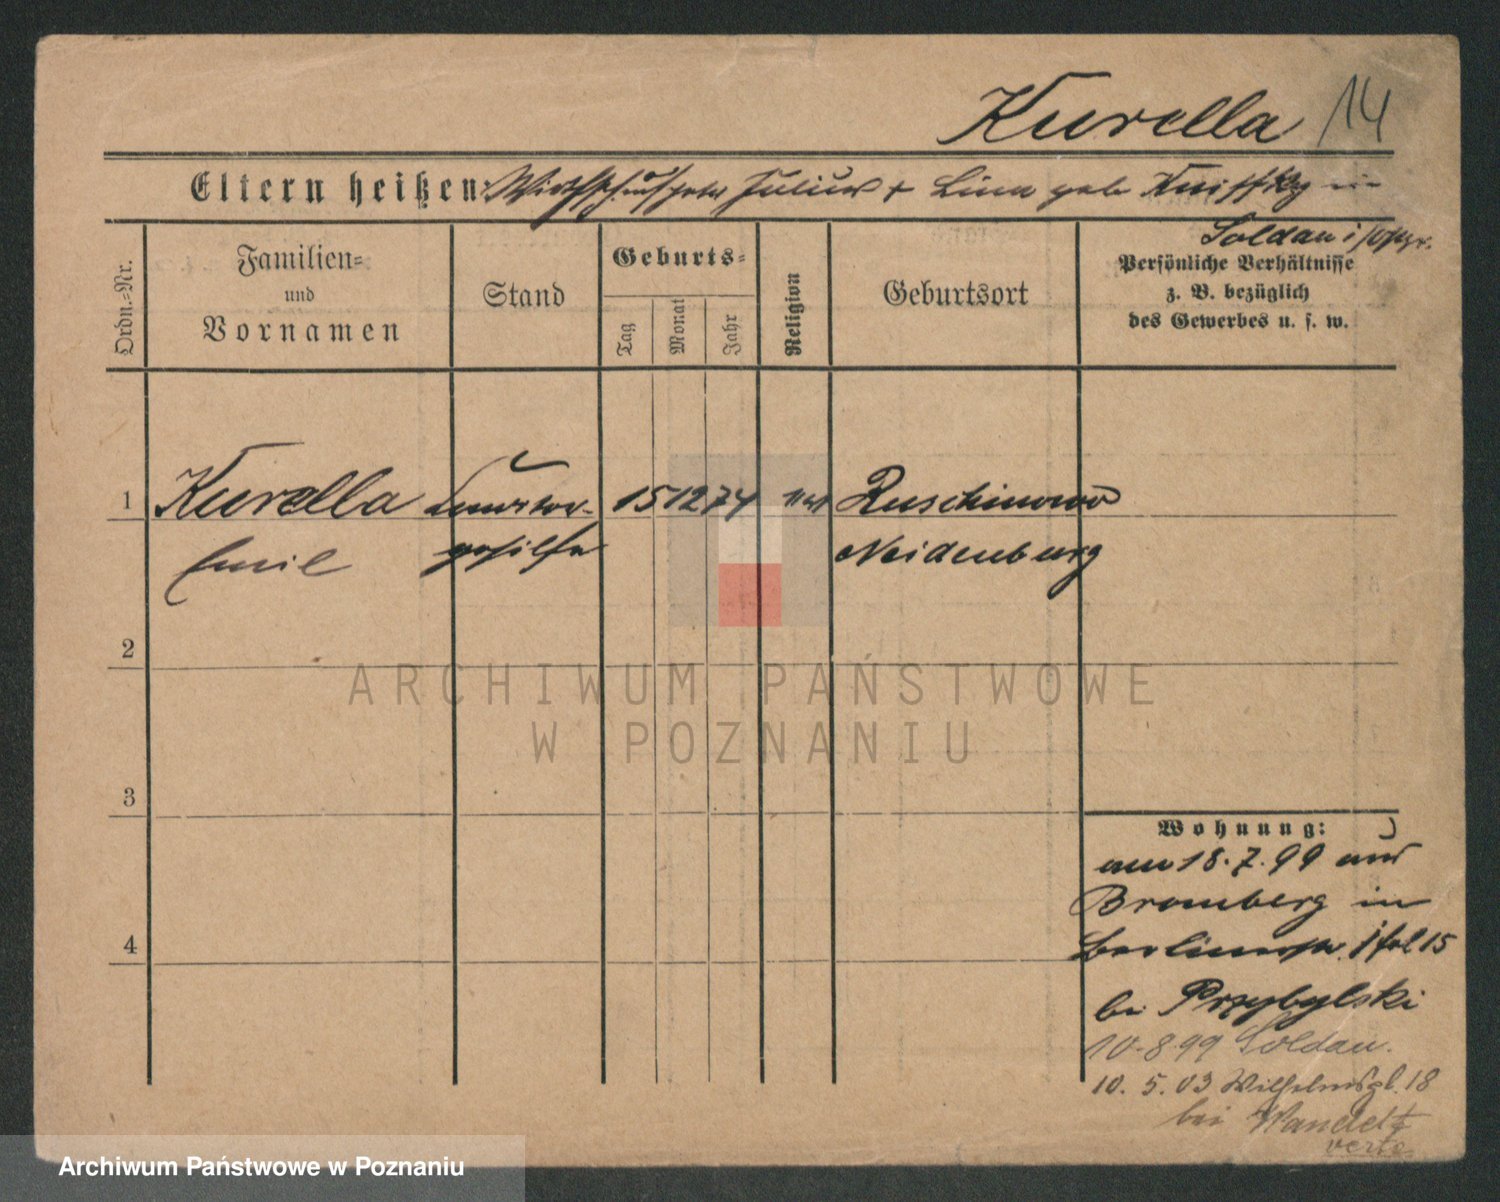 Kurella 14
Eltern heißen: Julius + Lina geb. in
Soldau i/Ostpr.
Ordn.=Nr.
Familien=
und
Vornamen
Stand
Geburts=
Tag
Monat
Jahr
Religion
Geburtsort
Persönliche Verhältnisse
z. B. bezüglich
des Gewerbes u. s. w.
1 Kurella 15 12 74 Ruschinowo
Emil gehilfe Neidenburg
2
ARCHIWUM PAŃSTWOWE
W POZNANIU
3
Wohnung:
am 18.7.99 aus
Bromberg in
Berlinerstr. 15
bei Przybylski
10.8.99 Soldau.
10.5.03 Wilhelmspl. 18
bei Wandelt
verte
4
Archiwum Państwowe w Poznaniu